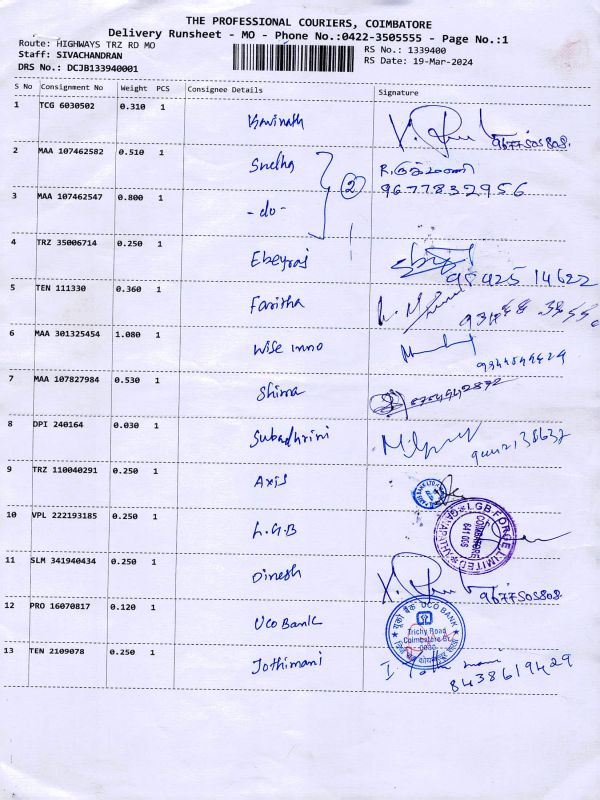 THE PROFESSIONAL COURIERS, COIMBATORE
Delivery Runsheet - MO - Phone No.:0422-3505555 - Page No.:1
Route: HIGHWAYS TRZ RD MO
Staff: SIVACHANDRAN
DRS No.: DCJB133940001
RS No.: 1339400
RS Date: 19-Mar-2024
S No Consignment No Weight PCS Consignee Details Signature
1 TCG 6030502 0.310 1 Kavinath 9677505808.
2 MAA 107462582 0.510 1 Sneha 2 R.ருக்மணி
9677832956
3 MAA 107462547 0.800 1 - do -
4 TRZ 35006714 0.250 1 Ebeyraj 95925 14622
5 TEN 111330 0.360 1 Faritha
6 MAA 301325454 1.080 1 Wise inno
7 MAA 107827984 0.530 1 Shima
8 DPI 240164 0.030 1 Subadhrini
9 TRZ 110040291 0.250 1 Axis
10 VPL 222193185 0.250 1 L.G.B LGB FORGE LIMITED GANAPATHY COIMBATORE 641 006
11 SLM 341940434 0.250 1 Dinesh 9677505808
12 PRO 16070817 0.120 1 UCO Bank यूको बैंक UCO BANK Trichy Road Coimbatore Br.
13 TEN 2109078 0.250 1 Jothimani
8438619429